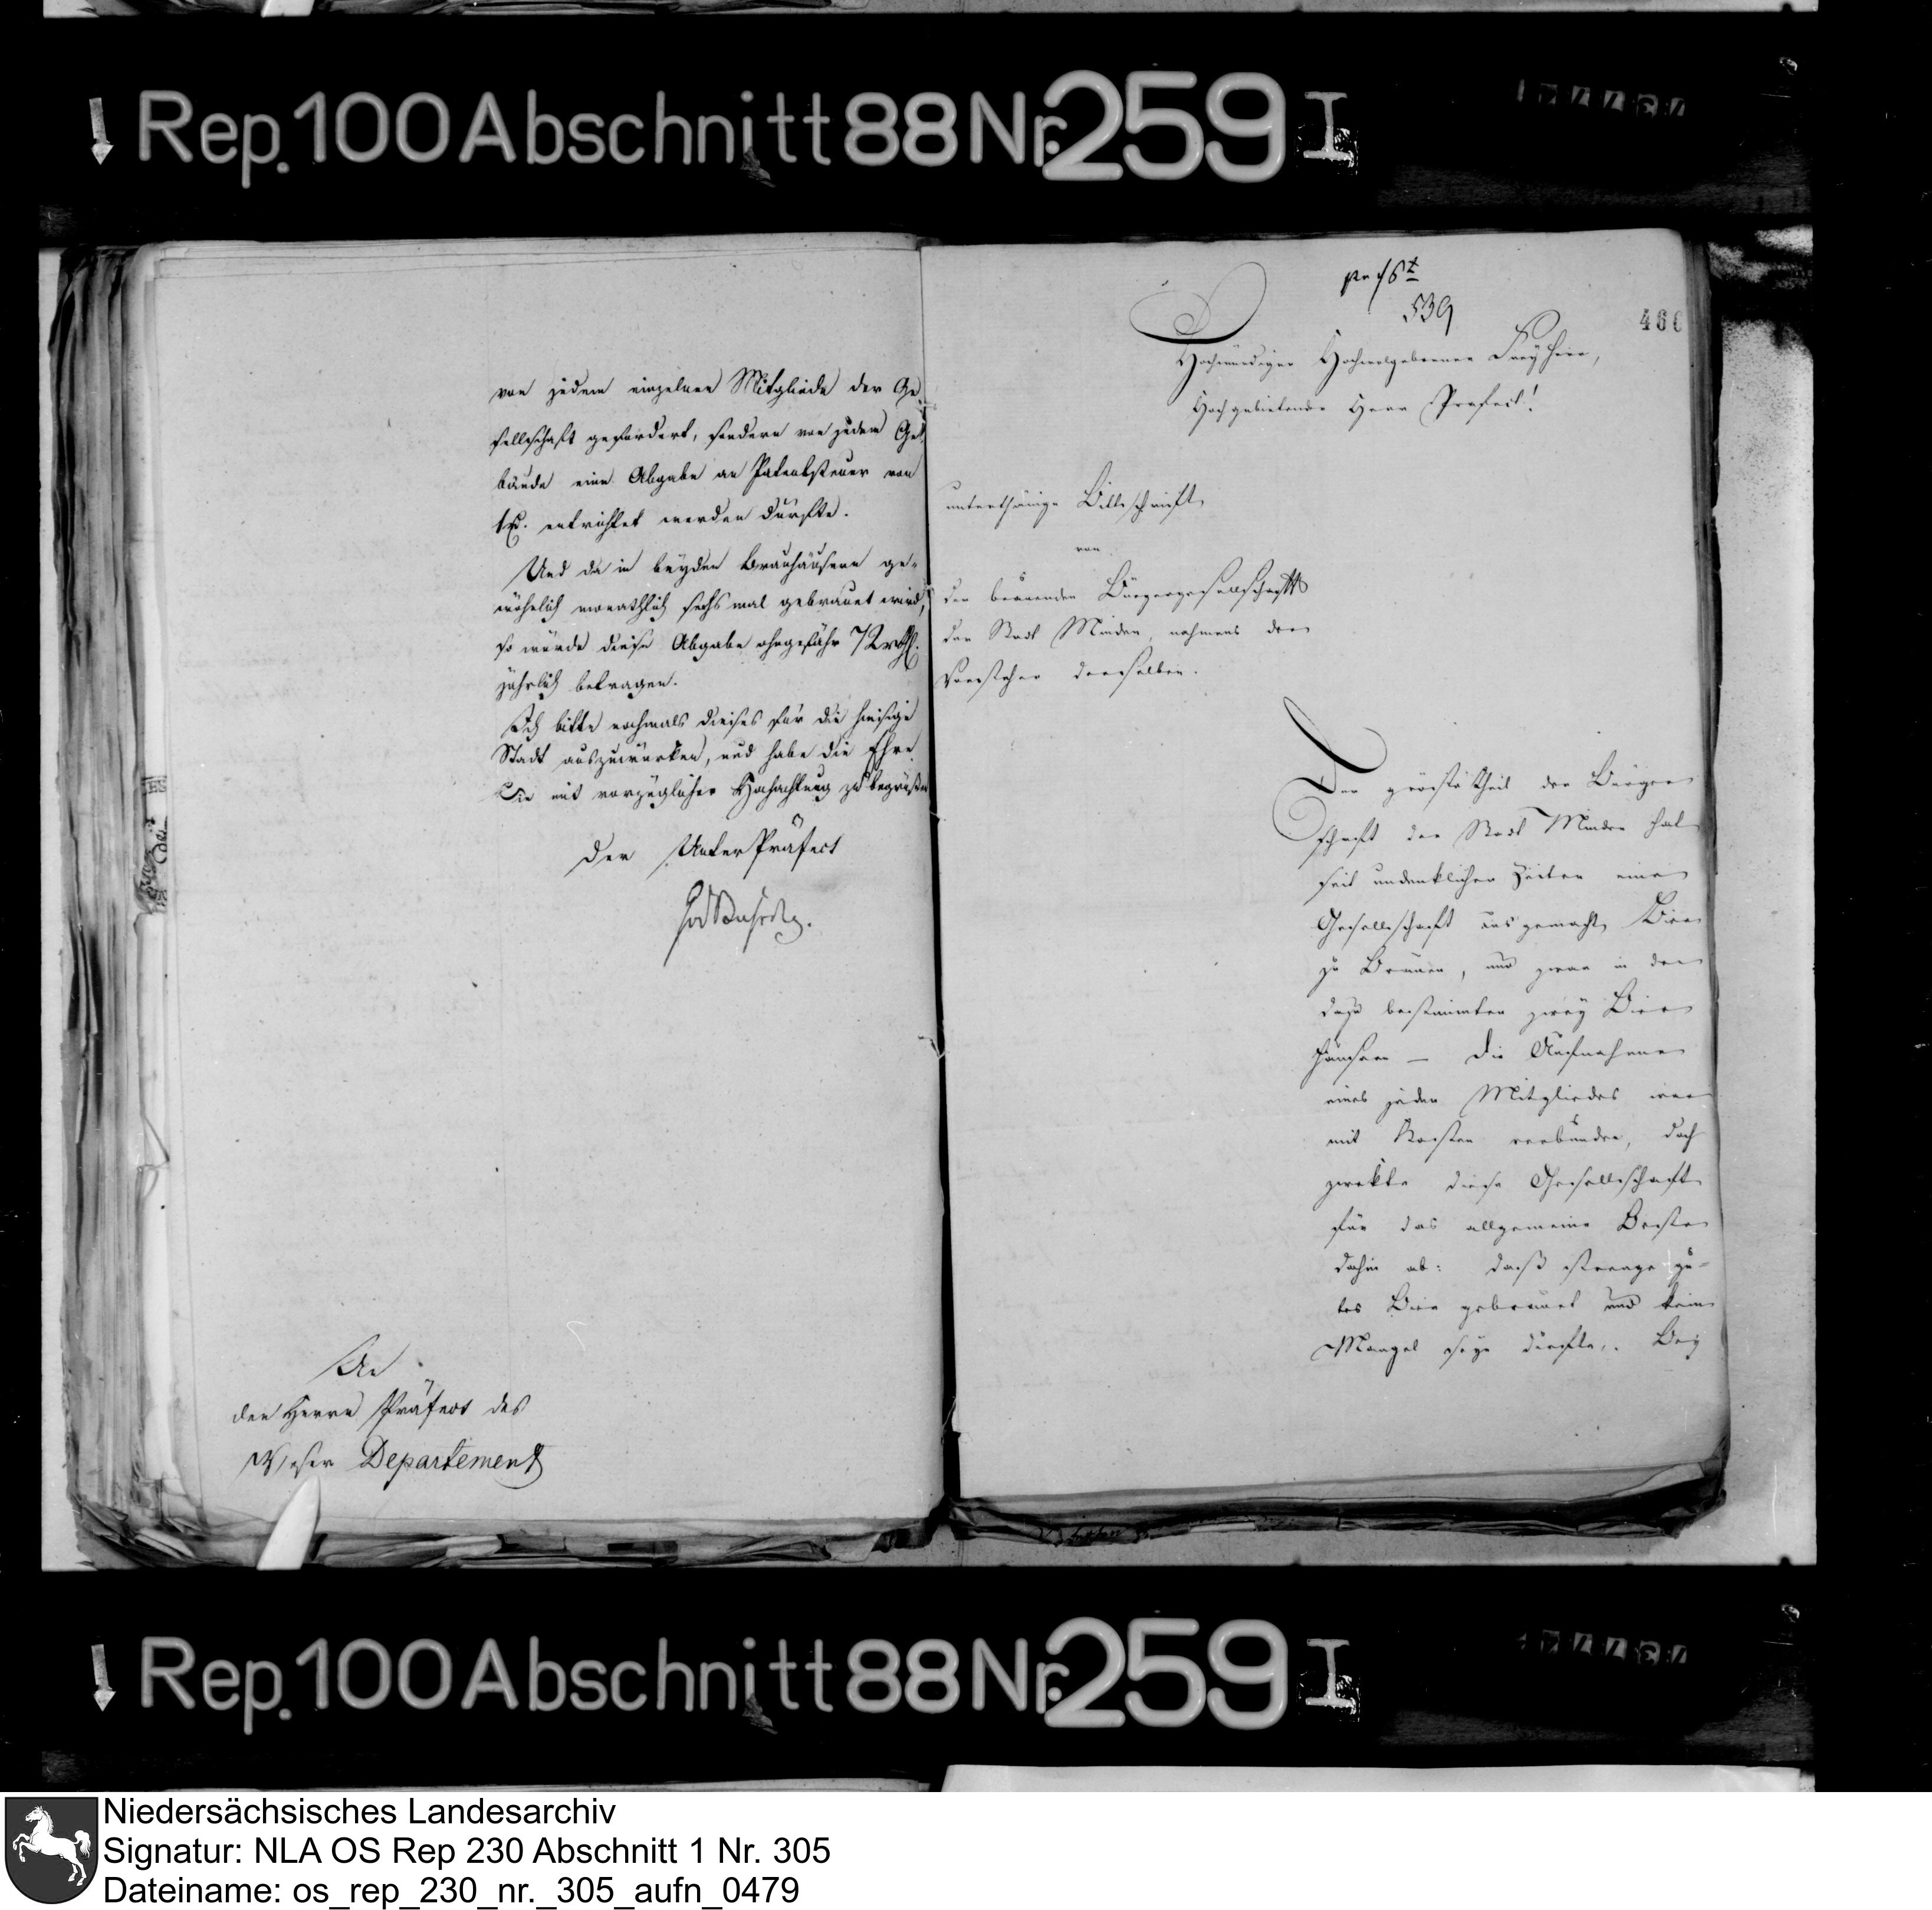 Rep. 100 Abschnitt 88 Nr. 259 I
von jedem einzelnen Mitgliede der Ge
sellschaft gefordert, sondern von jedem Ge¬
bäude eine Abgabe an Patentsteuer von
entrichtet werden dürfte.
Und da in beyden Brauhäusern ge¬
wöhnlich monathlich sechs mal gebrauet wird,
so würde diese Abgabe ohngefähr 72 rthl.
jährlich betragen.
Ich bitte nochmals dieses für die hiesige
Stadt auszuwürken, und habe die Ehre
Sie mit vorzüglicher Hochachtung zu begrüßen
Der UnterPräfect
An
den Herrn Präfect des
Weser Departement
539
466
Hochwürdiger Hochwolgeborner Freyherr,
Hochgebietender Herr Prefect!
unterthänige Bittschrift
von
der brauenden Bürgergesellschaft
der Stadt Minden, nahmens der
Vorsteher derselben.
Der gröste theil der Bürger
schaft der Stadt Minden hat
seit undenklichen Zeiten eine
Gesellschaft ausgemacht, Bier
zu Brauen, und zwar in den
dazu bestimmten zwey Bier
häusern — Die Aufnahme
eines jeden Mitgliedes war
mit Kosten verbunden, doch
zwekte diese Gesellschaft
für das allgemeine Beste
dahin ab: daß strenge gu¬
tes Bier gebrauet und kein
Mangel seyn dürfte. Bey
Rep. 100 Abschnitt 88 Nr. 259 I
Niedersächsisches Landesarchiv
Signatur: NLA OS Rep 230 Abschnitt 1 Nr. 305
Dateiname: os_rep_230_nr._305_aufn_0479